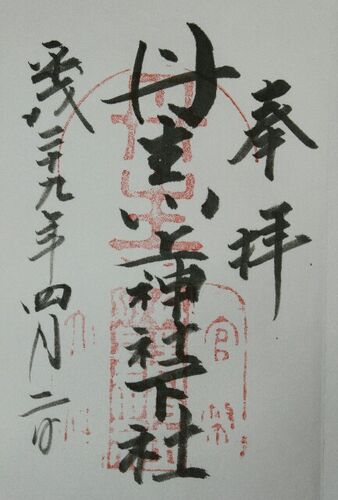 奉拝
丹生川上神社下社
平成二十九年四月二日